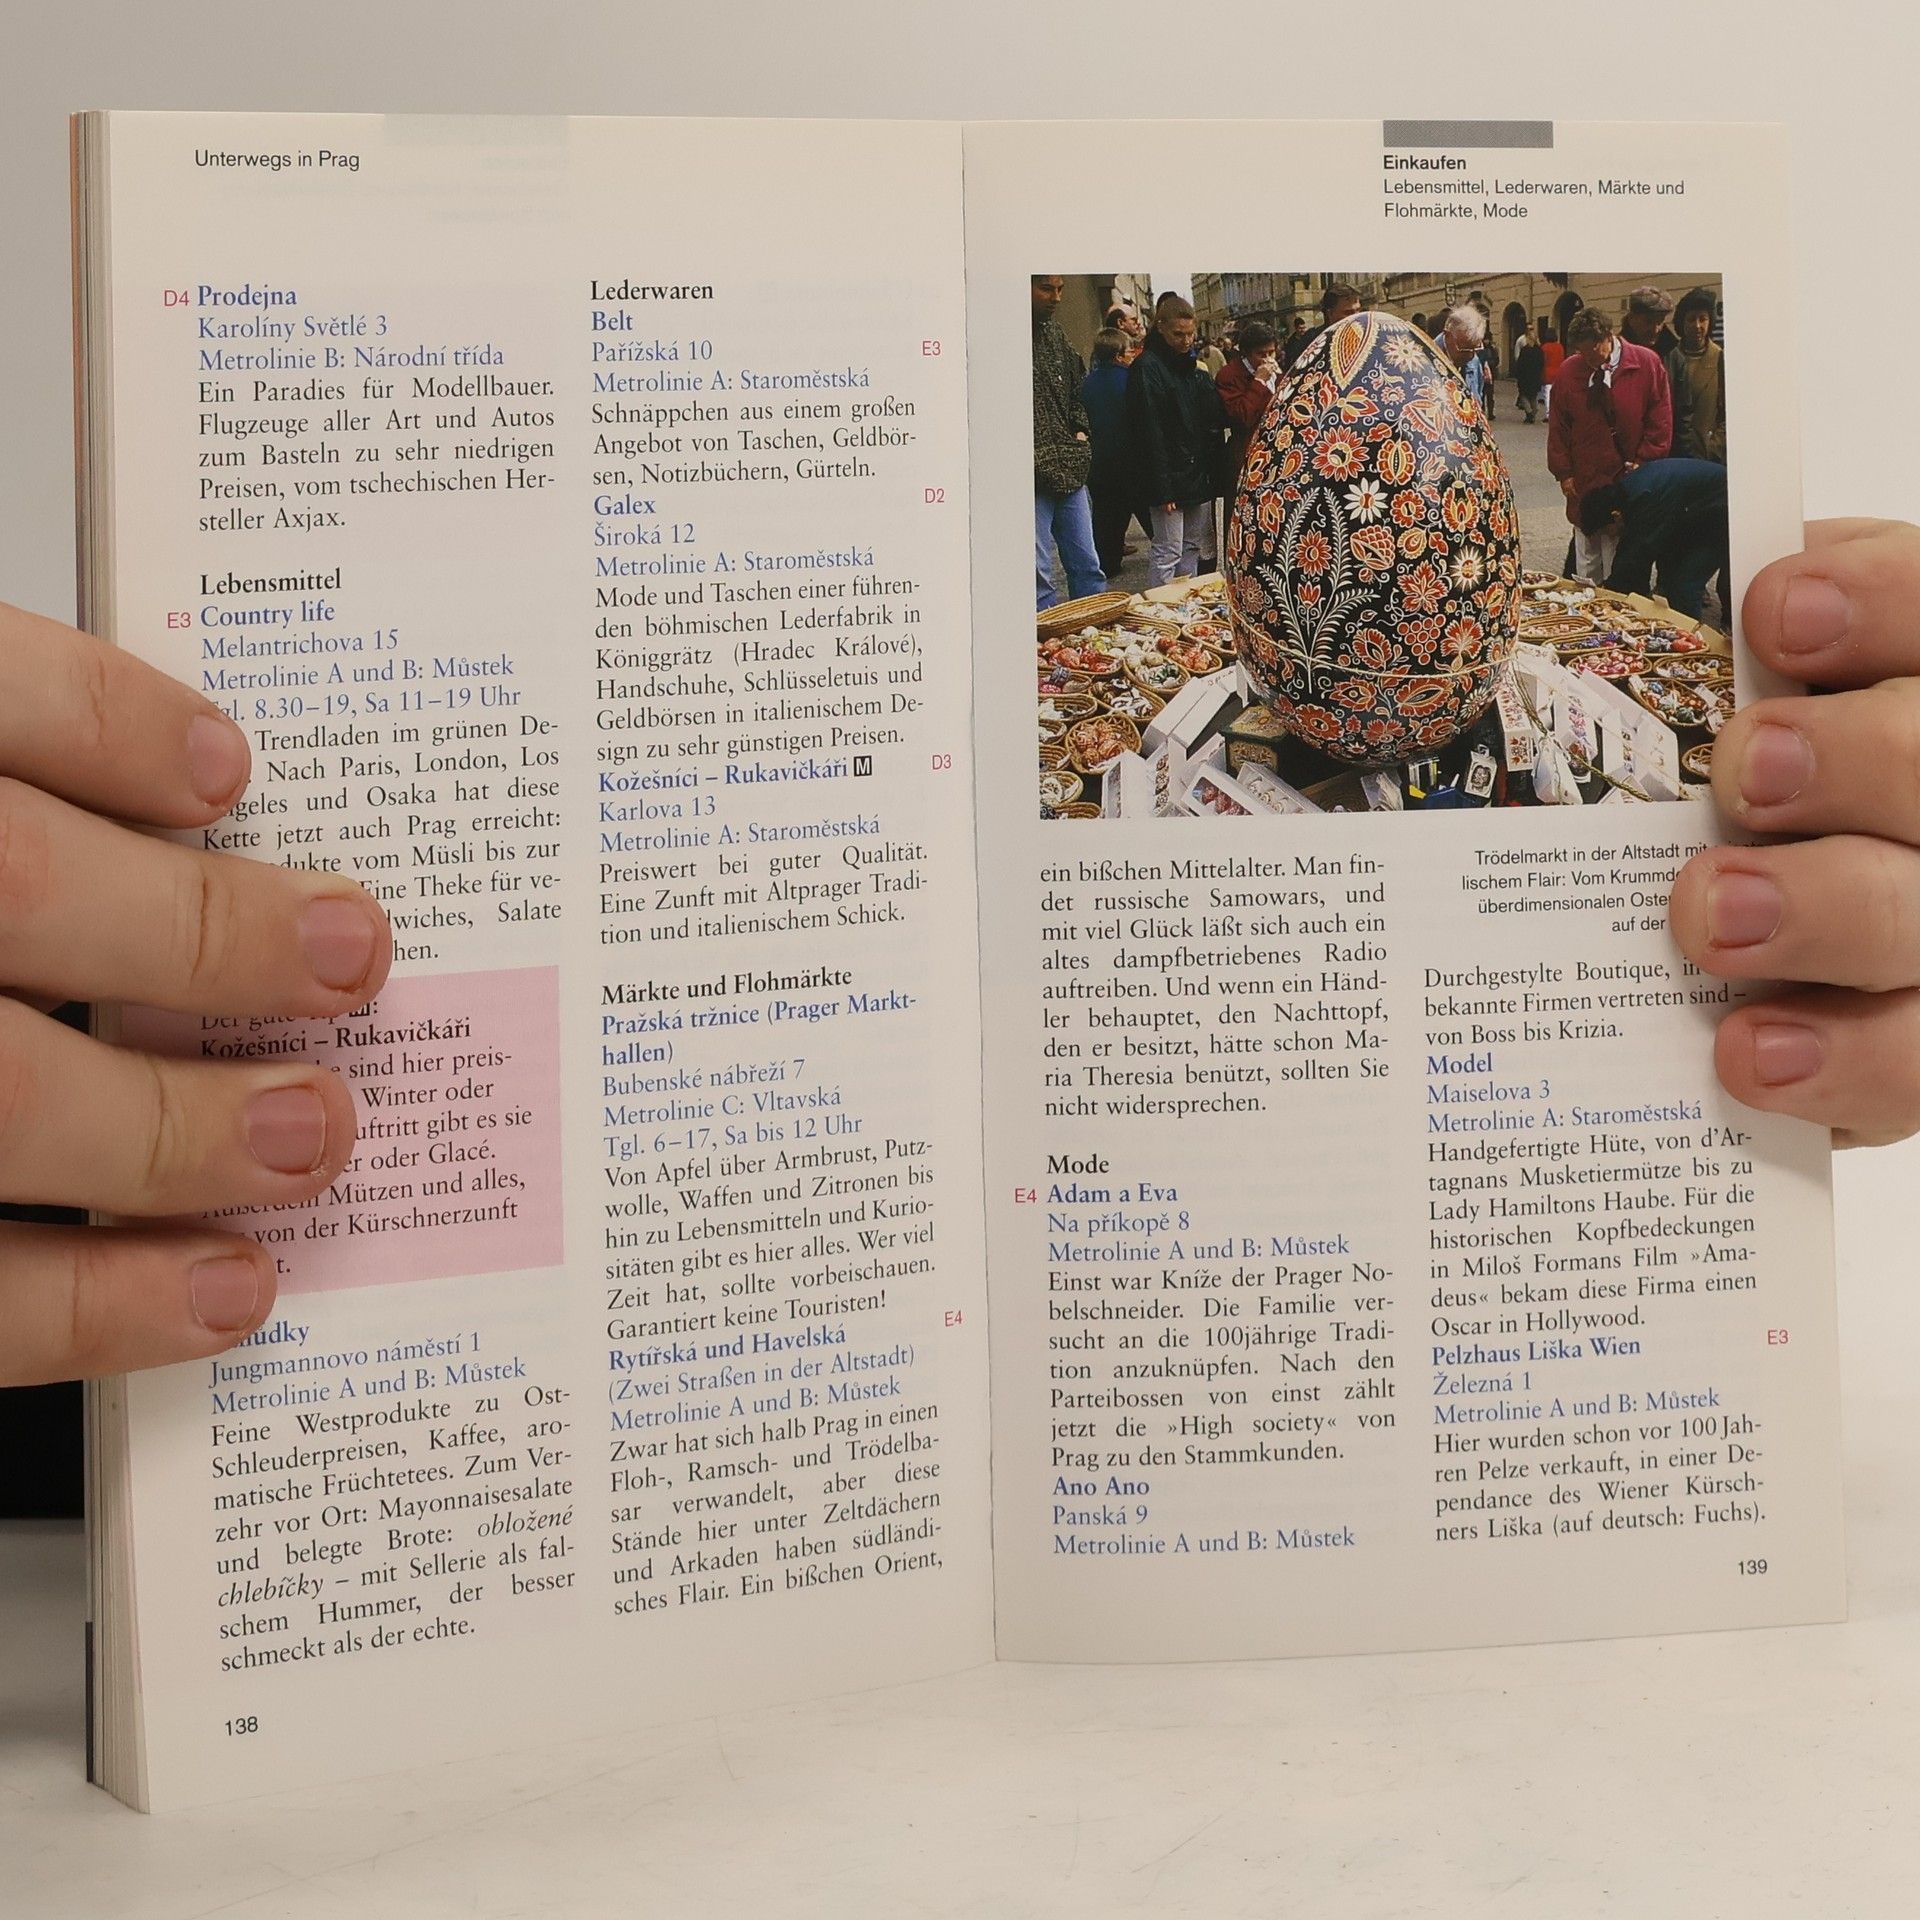 Unterwegs in Prag
D4 Prodejna
Karolíny Světlé 3
Metrolinie B: Národní třída
Ein Paradies für Modellbauer.
Flugzeuge aller Art und Autos
zum Basteln zu sehr niedrigen
Preisen, vom tschechischen Her-
steller Axjax.
Lebensmittel
E3 Country life
Melantrichova 15
Metrolinie A und B: Můstek
8.30–19, Sa 11–19 Uhr
Trendladen im grünen De-
Nach Paris, London, Los
und Osaka hat diese
Kette jetzt auch Prag erreicht:
vom Müsli bis zur
Eine Theke für ve-
Salate
Kožešníci – Rukavičkáři
sind hier preis-
Winter oder
gibt es sie
oder Glacé.
Mützen und alles,
von der Kürschnerzunft
Jungmannovo náměstí 1
Metrolinie A und B: Můstek
Feine Westprodukte zu Ost-
Schleuderpreisen, Kaffee, aro-
matische Früchtetees. Zum Ver-
zehr vor Ort: Mayonnaisesalate
und belegte Brote: obložené
chlebíčky – mit Sellerie als fal-
schem Hummer, der besser
schmeckt als der echte.
138
Lederwaren
Belt
Pařížská 10 E3
Metrolinie A: Staroměstská
Schnäppchen aus einem großen
Angebot von Taschen, Geldbör-
sen, Notizbüchern, Gürteln.
Galex D2
Široká 12
Metrolinie A: Staroměstská
Mode und Taschen einer führen-
den böhmischen Lederfabrik in
Königgrätz (Hradec Králové),
Handschuhe, Schlüsseletuis und
Geldbörsen in italienischem De-
sign zu sehr günstigen Preisen.
Kožešníci – Rukavičkáři M D3
Karlova 13
Metrolinie A: Staroměstská
Preiswert bei guter Qualität.
Eine Zunft mit Altprager Tradi-
tion und italienischem Schick.
Märkte und Flohmärkte
Pražská tržnice (Prager Markt-
hallen)
Bubenské nábřeží 7
Metrolinie C: Vltavská
Tgl. 6–17, Sa bis 12 Uhr
Von Apfel über Armbrust, Putz-
wolle, Waffen und Zitronen bis
hin zu Lebensmitteln und Kurio-
sitäten gibt es hier alles. Wer viel
Zeit hat, sollte vorbeischauen.
Garantiert keine Touristen!
Rytířská und Havelská E4
(Zwei Straßen in der Altstadt)
Metrolinie A und B: Můstek
Zwar hat sich halb Prag in einen
Floh-, Ramsch- und Trödelba-
sar verwandelt, aber diese
Stände hier unter Zeltdächern
und Arkaden haben südländi-
sches Flair. Ein bißchen Orient,
Einkaufen
Lebensmittel, Lederwaren, Märkte und
Flohmärkte, Mode
ein bißchen Mittelalter. Man fin-
det russische Samowars, und
mit viel Glück läßt sich auch ein
altes dampfbetriebenes Radio
auftreiben. Und wenn ein Händ-
ler behauptet, den Nachttopf,
den er besitzt, hätte schon Ma-
ria Theresia benützt, sollten Sie
nicht widersprechen.
Mode
E4 Adam a Eva
Na příkopě 8
Metrolinie A und B: Můstek
Einst war Kníže der Prager No-
belschneider. Die Familie ver-
sucht an die 100jährige Tradi-
tion anzuknüpfen. Nach den
Parteibossen von einst zählt
jetzt die »High society« von
Prag zu den Stammkunden.
Ano Ano
Panská 9
Metrolinie A und B: Můstek
Trödelmarkt in der Altstadt mit
lischem Flair: Vom
überdimensionalen
auf der
Durchgestylte Boutique, in
bekannte Firmen vertreten sind –
von Boss bis Krizia.
Model
Maiselova 3
Metrolinie A: Staroměstská
Handgefertigte Hüte, von d'Ar-
tagnans Musketiermütze bis zu
Lady Hamiltons Haube. Für die
historischen Kopfbedeckungen
in Miloš Formans Film »Ama-
deus« bekam diese Firma einen
Oscar in Hollywood.
Pelzhaus Liška Wien E3
Železná 1
Metrolinie A und B: Můstek
Hier wurden schon vor 100 Jah-
ren Pelze verkauft, in einer De-
pendance des Wiener Kürsch-
ners Liška (auf deutsch: Fuchs).
139